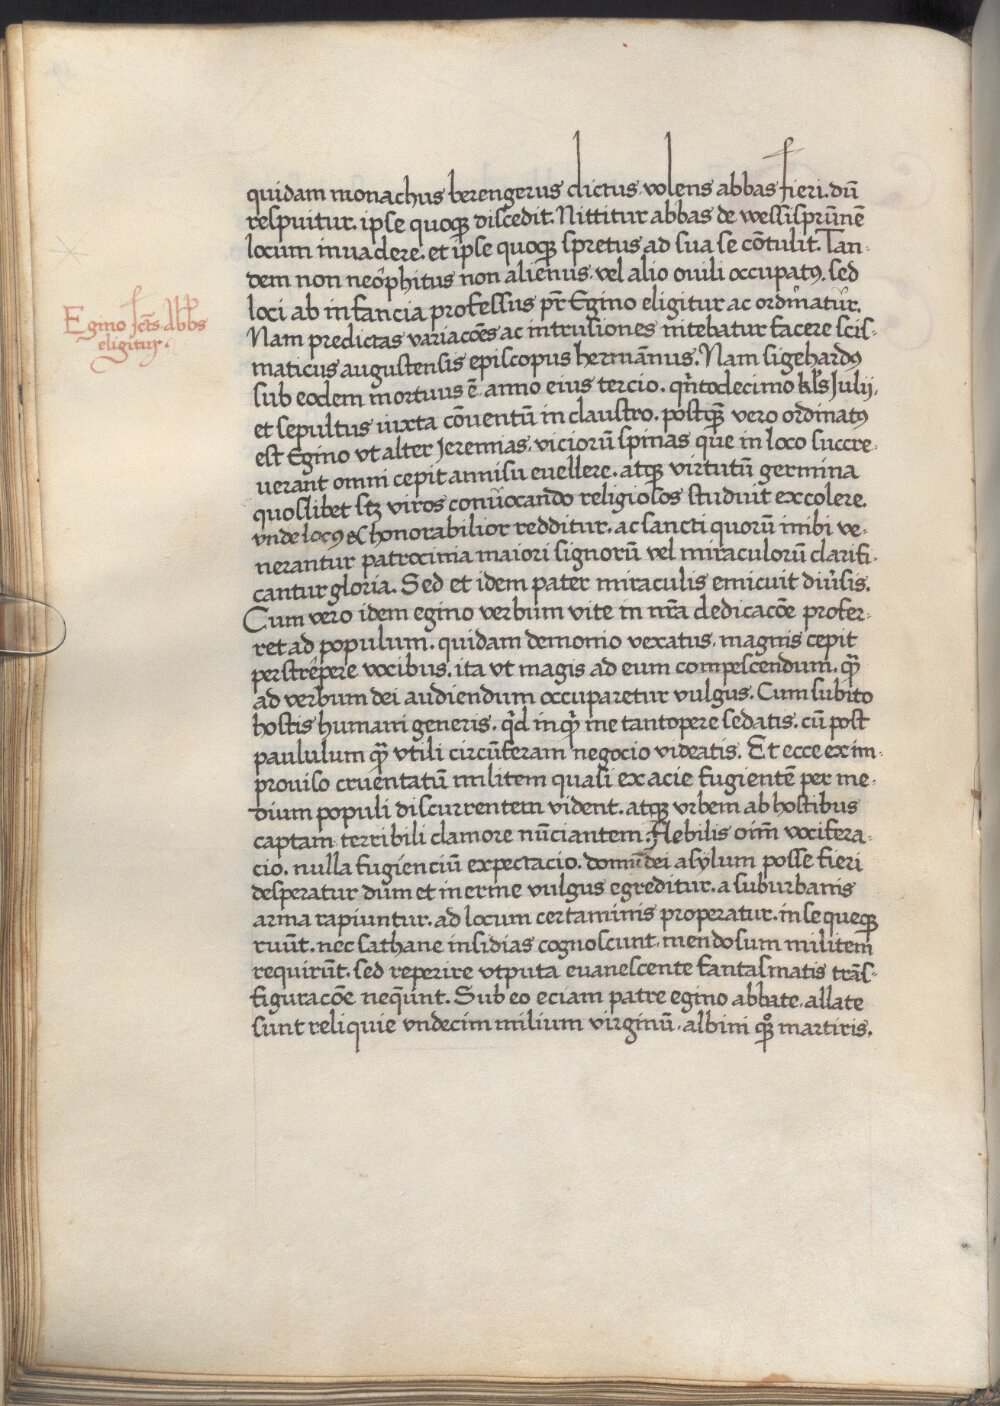 quidam monachus berengerus dictus volens abbas fieri. dū
respuitur. ipse quoqꝫ discedit. Nittitur abbas de wessisprūnē
locum inuadere. et ipse quoqꝫ spretus ad sua se cōtulit. Tan-
dem non neophitus non alienus vel alio ouili occupatꝰ. sed
loci ab infancia professus pr̄ Egino eligitur ac ordinatur.
Egino sctūs abbs
eligitur.
Nam predictas variacōes ac intrusiones nitebatur facere scis-
maticus augustensis episcopus hermānus. Nam sigehardꝰ
sub eodem mortuus ē anno eius tercio. qn̄todecimo kl̄s Julij,
et sepultus iuxta cōuentū in claustro. postqꝫ vero ordinatꝰ
est Egino vt alter Jeremias. viciorū spinas que in loco succre-
uerant omni cepit annisu euellere. atqꝫ virtutū germina
quoslibet sꝫ viros conuocando religiosos studuit excolere.
vnde locꝰ & honorabilior redditur. ac sancti quorū inibi ve-
nerantur patrocinia maiori signorū vel miraculorū clarifi-
cantur gloria. Sed et idem pater miraculis emicuit diu̕sis.
Cum vero idem egino verbum vite in nr̄a dedicacōe profer-
ret ad populum. quidam demonio vexatus. magnis cepit
perstrepere vocibus. ita vt magis ad eum compescendum. qꝫ̄
ad verbum dei audiendum occuparetur vulgus. Cum subito
hostis humani generis. qd̕ inqꝫ̄ me tantopere sedatis. cū post
paululum qꝫ̄ vtili circūferam negocio videatis. Et ecce ex im-
prouiso cruentatū militem quasi ex acie fugientē per me-
dium populi discurrentem vident. atqꝫ vrbem ab hostibus
captam terribili clamore nūciantem. Flebilis oīm vocifera-
cio. nulla fugienciū expectacio. domū dei asylum posse fieri
desperatur dum et inerme vulgus egreditur. a suburbanis
arma rapiuntur. ad locum certaminis properatur. in se queqꝫ
ruūt. nec sathane insidias cognoscunt. mendosum militem
requirūt. sed reperire vtputa euanescente fantasmatis trās-
figuracōe neqūnt. Sub eo eciam patre egino abbate. allate
sunt reliquie vndecim milium virginū. albini qꝫ̊ martiris.